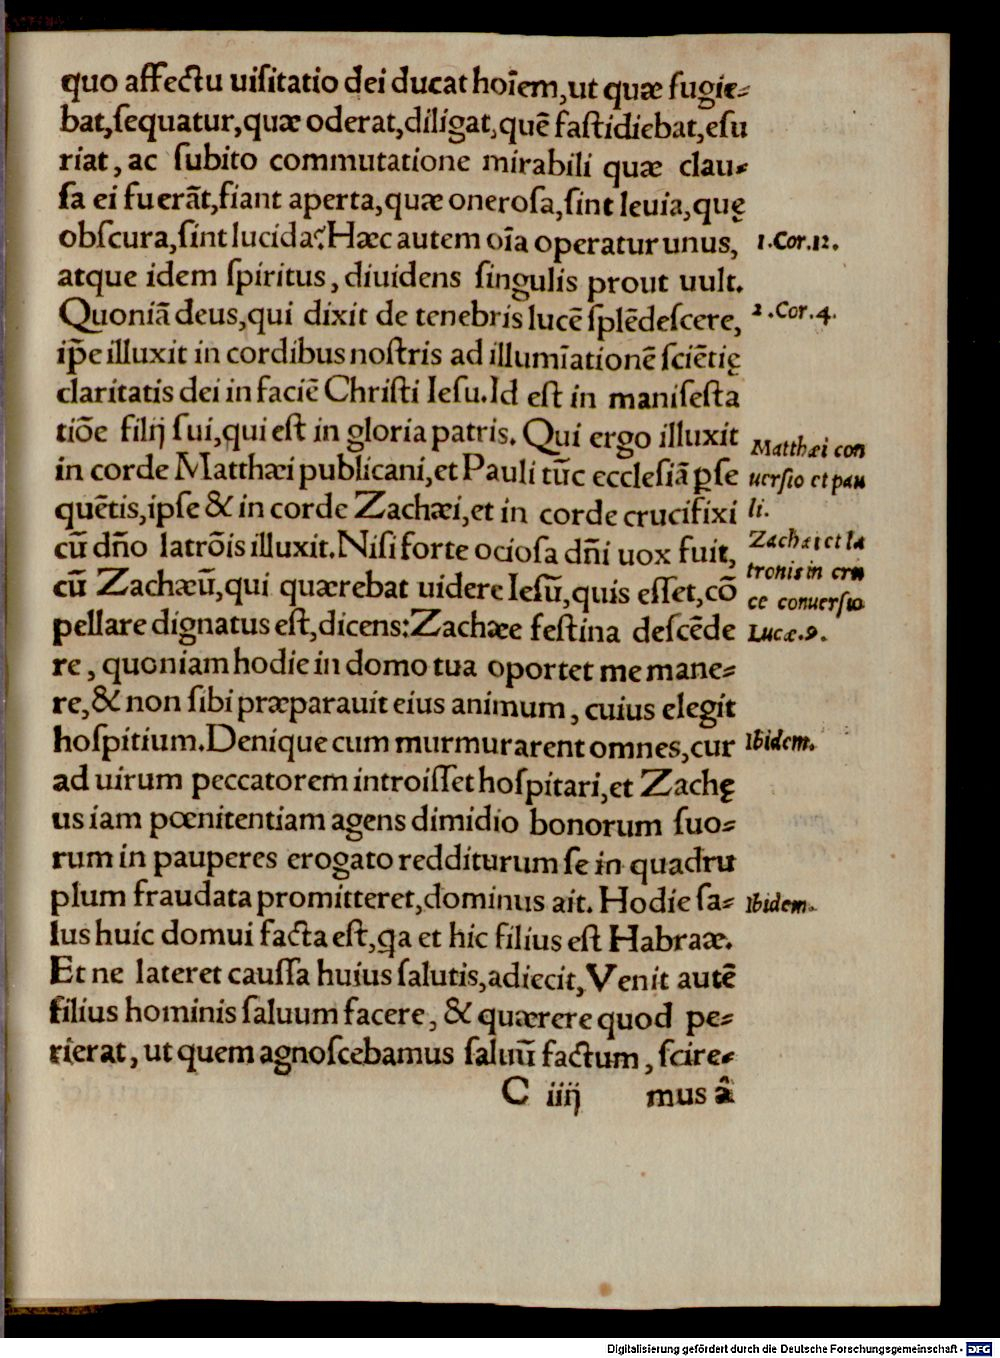 quo affectu uiſitatio dei ducat hoĩem,ut quæ fugie⸗
bat,ſequatur,quæ oderat,diligat,quẽ faſtidiebat,eſu
riat, ac ſubito commutatione mirabili quæ clau⸗
ſa ei fuerãt,fiant aperta,quæ oneroſa,ſint leuia,quę
obſcura,ſint lucida? Hæc autem oĩa operatur unus,
1.Cor.12.
atque idem ſpiritus, diuidens ſingulis prout uult.
Quoniã deus,qui dixit de tenebris lucẽ ſplẽdeſcere,
2.Cor.4.
ip̃e illuxit in cordibus noſtris ad illumĩationẽ ſciẽtię
claritatis dei in faciẽ Chriſti Ieſu.Id eſt in manifeſta
tiõe filij ſui,qui eſt in gloria patris. Qui ergo illuxit
in corde Matthæi publicani,et Pauli tũc eccleſiã ꝑſe
quẽtis,ipſe & in corde Zachæi,et in corde crucifixi
Matthæi con
uerſio et pau
li.
cũ dño latrõis illuxit.Niſi forte ocioſa dñi uox fuit,
cũ Zachæũ,qui quærebat uidere Ieſũ,quis eſſet,cõ
pellare dignatus eſt,dicens:Zachæe feſtina deſcẽde
Zachæi et la
tronis in cru
ce conuerſio
Lucæ.9.
re, quoniam hodie in domo tua oportet me mane⸗
re,& non ſibi præparauit eius animum, cuius elegit
hoſpitium.Denique cum murmurarent omnes,cur
Ibidem.
ad uirum peccatorem introiſſet hoſpitari,et Zachę
us iam pœnitentiam agens dimidio bonorum ſuo⸗
rum in pauperes erogato redditurum ſe in quadru
plum fraudata promitteret,dominus ait. Hodie ſa⸗
Ibidem.
lus huic domui facta eſt,ꝗa et hic filius eſt Habraæ.
Et ne lateret cauſſa huius ſalutis,adiecit,Venit autẽ
filius hominis ſaluum facere, & quærere quod pe⸗
rierat, ut quem agnoſcebamus ſaluũ factum, ſcire⸗
C iiij mus â
Digitalisierung gefördert durch die Deutsche Forschungsgemeinschaft - DFG